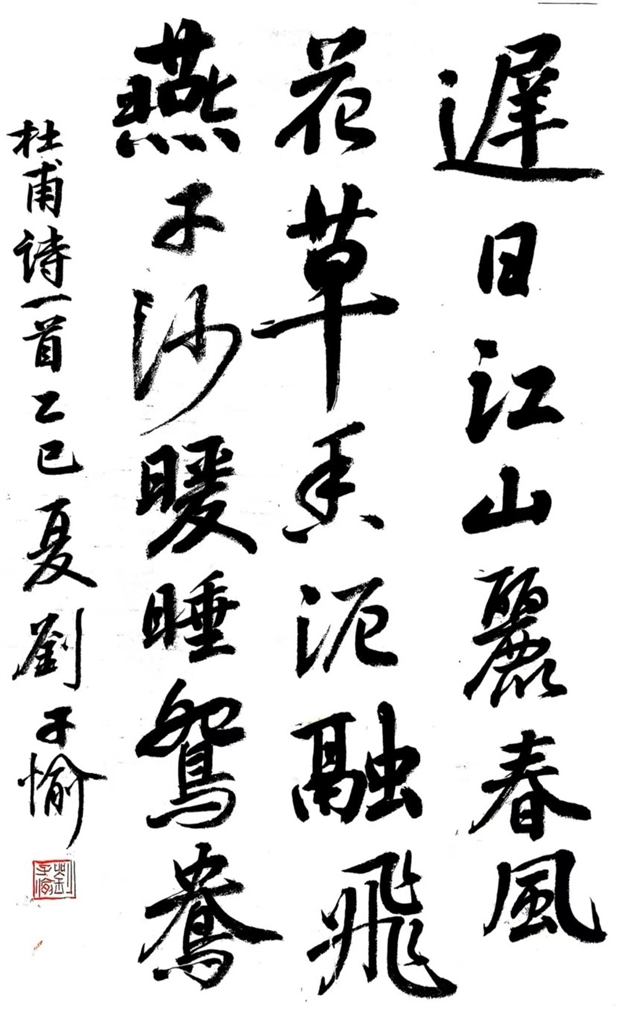 遲日江山麗春風
花草香泥融飛
燕子沙暖睡鴛鴦
杜甫诗一首乙巳夏劉子愉
劉子愉